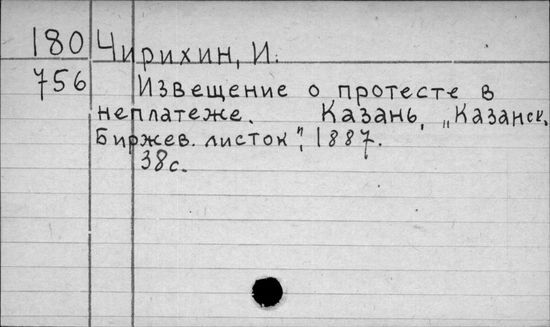 180 Чирихин, И.
756 Извещение о протесте в
неплатеже. Казань, „Казанск.
Биржев. листок", 1887.
38 с.